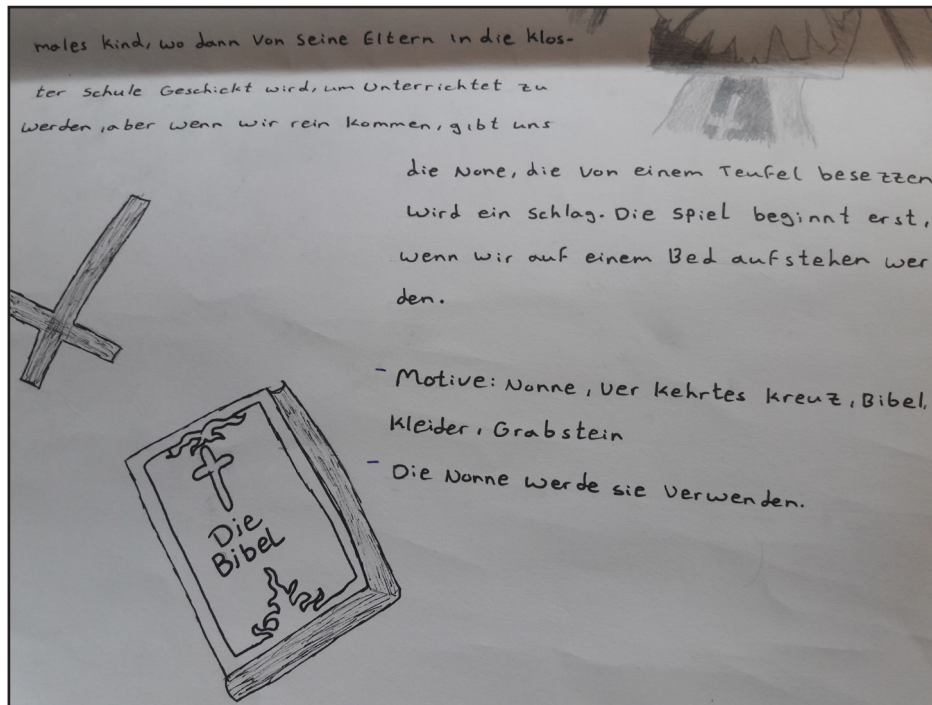 males Kind, wo dann von seine Eltern in die Klos-
ter Schule Geschickt wird, um Unterrichtet zu
werden, aber wenn wir rein kommen, gibt uns
die None, die von einem Teufel besezzen
wird ein schlag. Die spiel beginnt erst,
wenn wir auf einem Bed aufstehen wer
den.
- Motive: Nonne, Ver kehrtes Kreuz, Bibel,
Kleider, Grabstein
- Die Nonne werde sie verwenden.
Die
Bibel